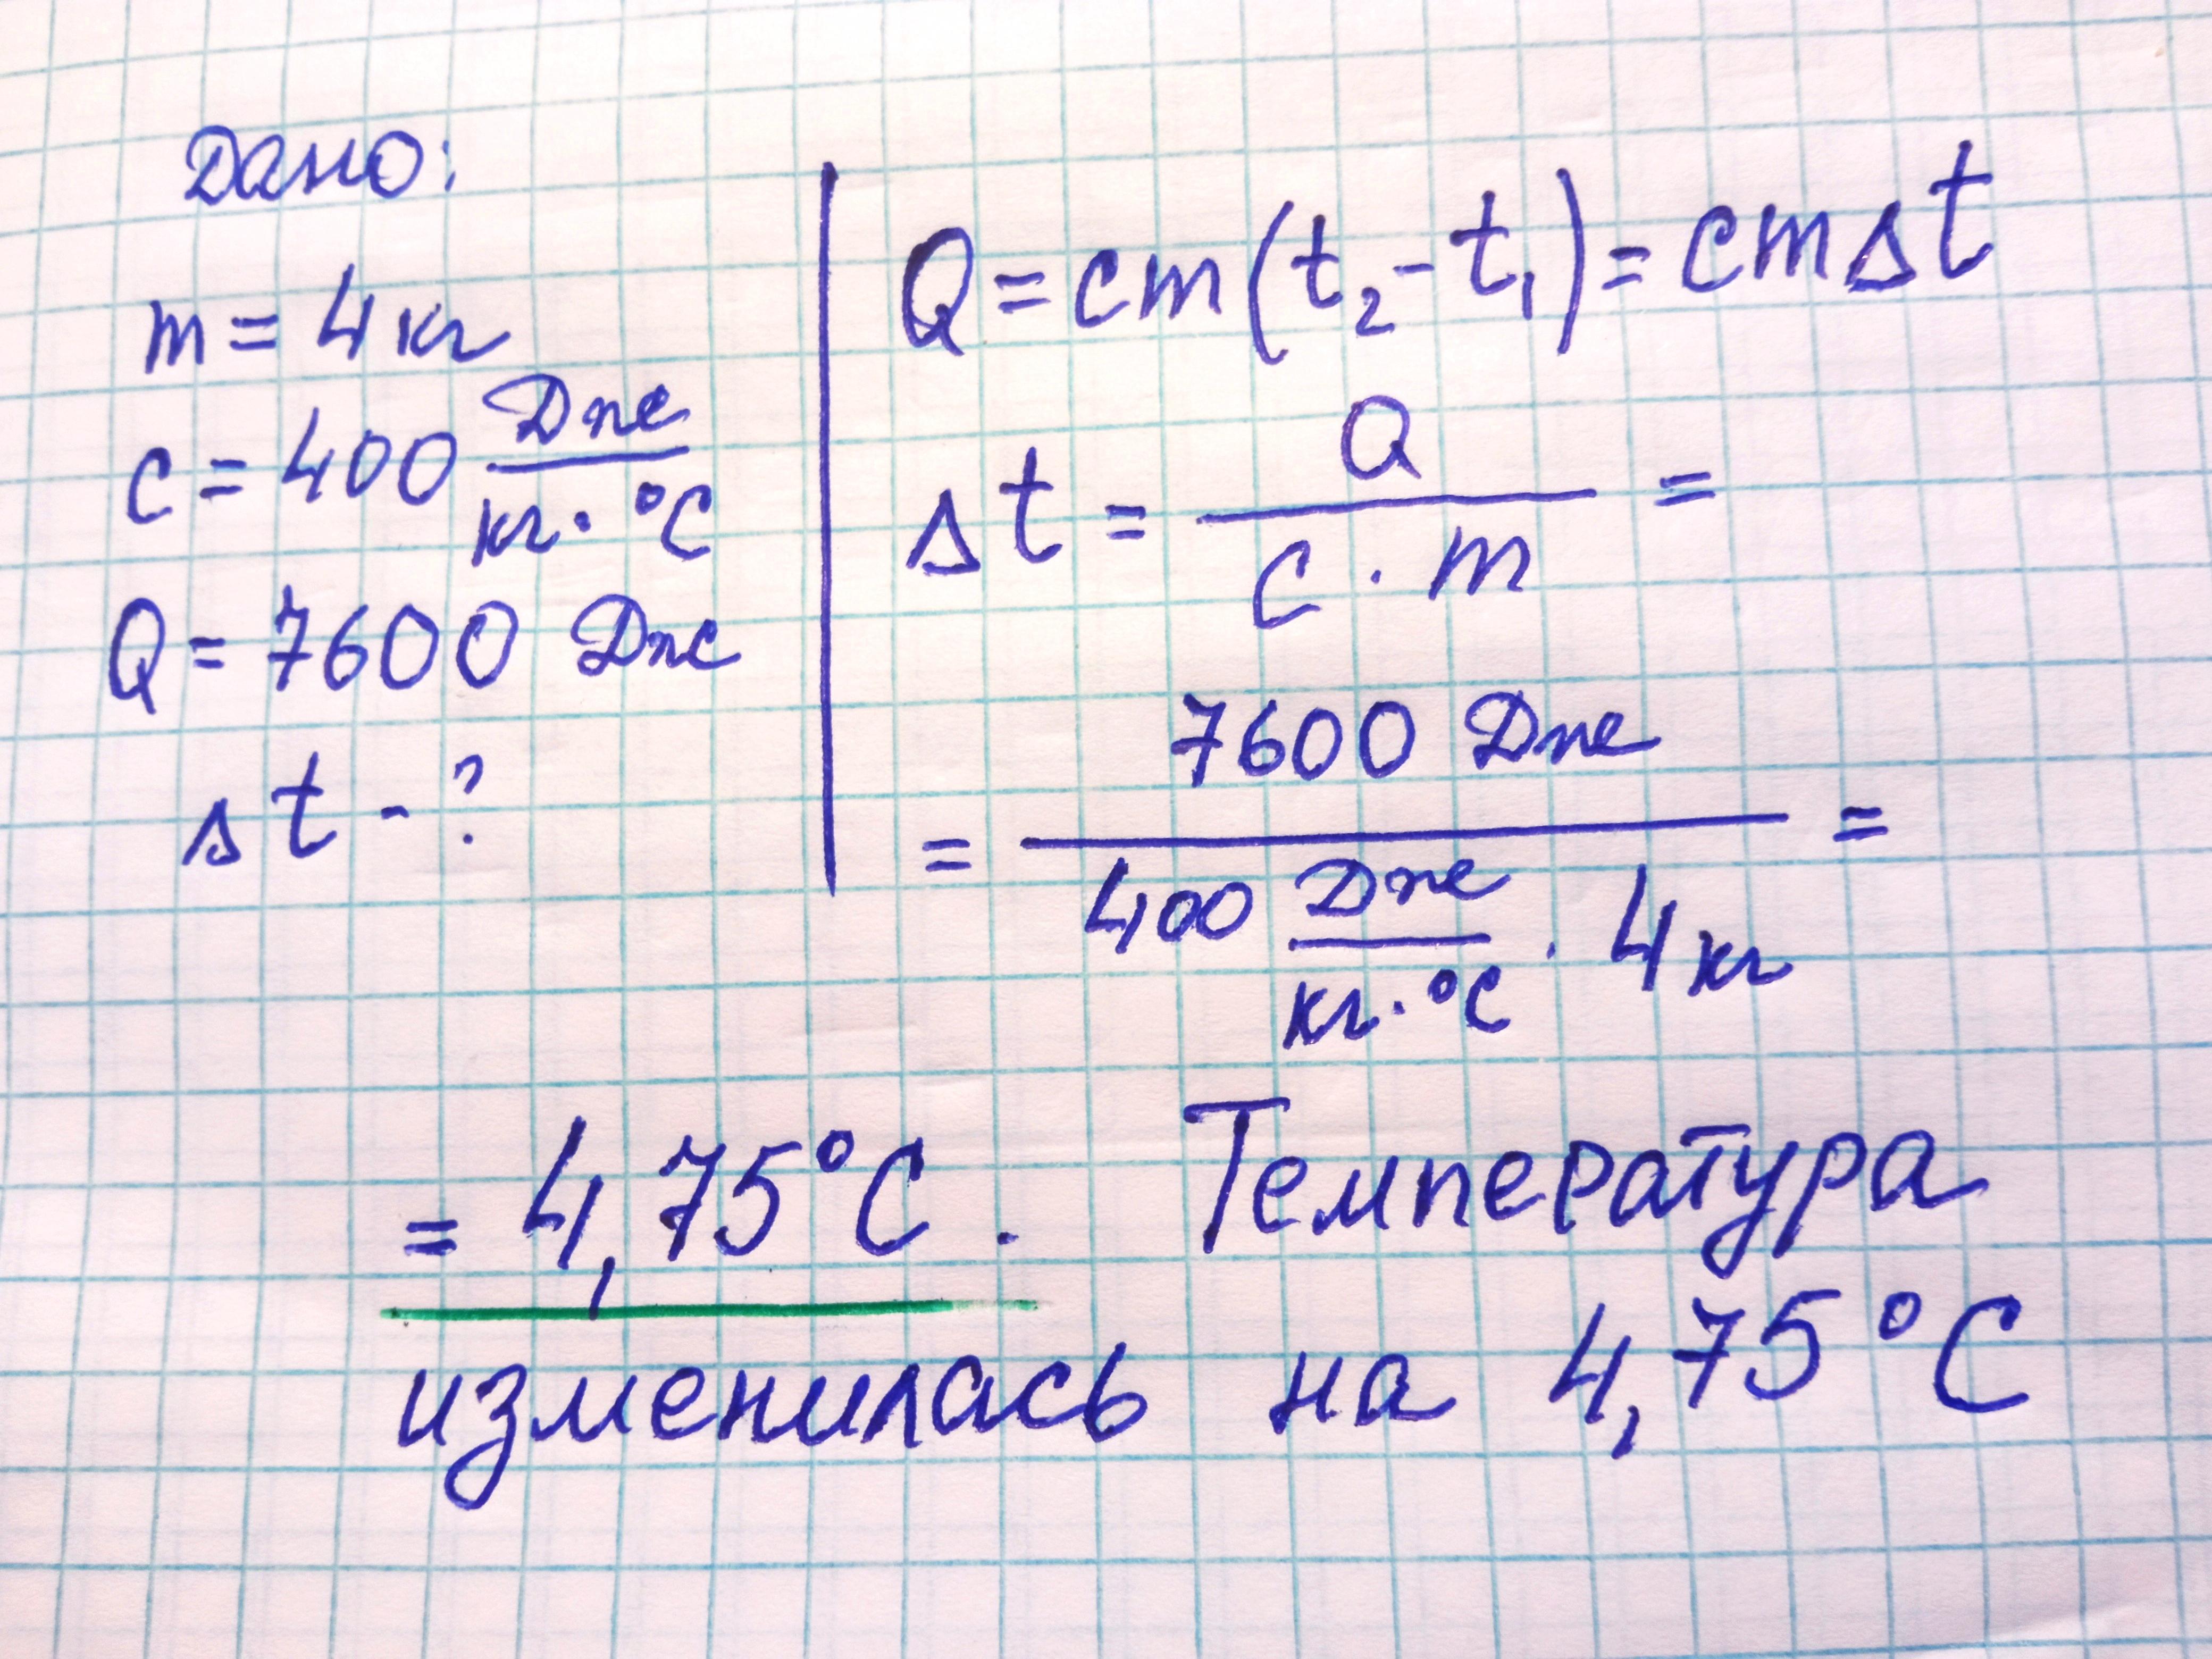 Дано:
m = 4 кг
c = 400 Дж/кг·°C
Q = 7600 Дж
Δt - ?
Q = cm(t₂ - t₁) = cmΔt
Δt = Q/c · m =
= 7600 Дж/400 Дж/кг·°C · 4 кг =
= 4,75°C. Температура
изменилась на 4,75°C